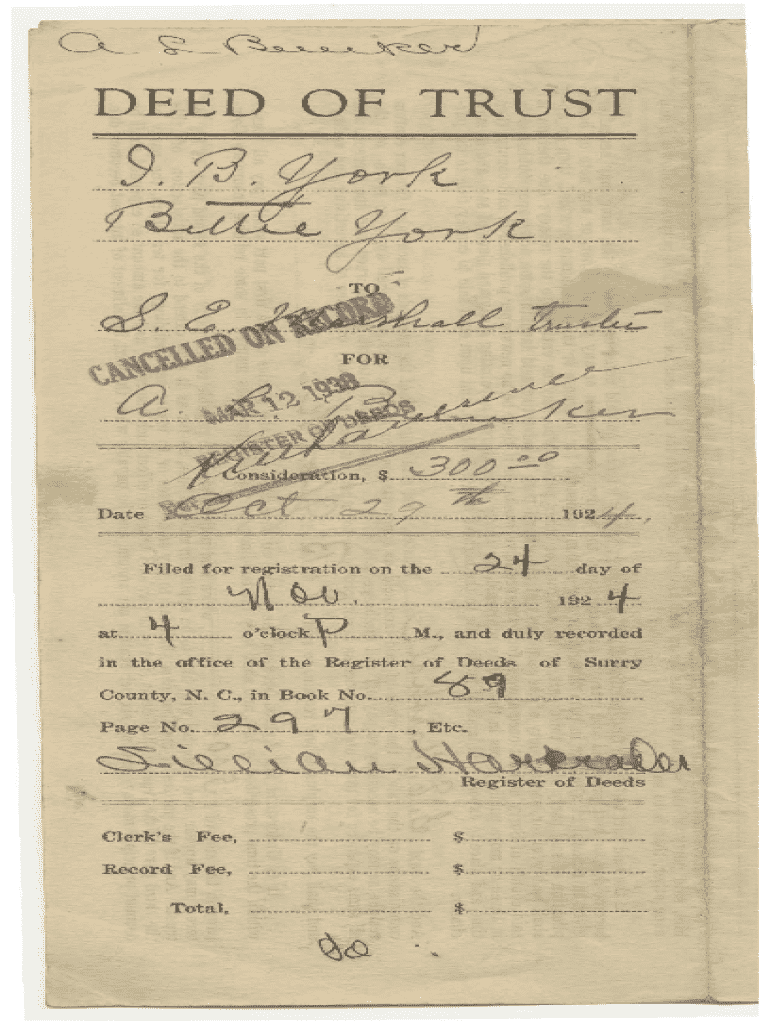 A L Bunker
DEED OF TRUST
I. B. York
Bettie York
TO
S. E. Marshall trustee
CANCELLED ON RECORD
FOR
MAR 12 1938
A. L. Bunker
REGISTER OF DEEDS
Consideration, $ 300 00
Date Oct 29th 1924.
Filed for registration on the 24 day of
Nov. 1924
at 4 o'clock P M., and duly recorded
in the office of the Register of Deeds of Surry
County, N. C., in Book No. 89
Page No. 297, Etc.
Lillian
Register of Deeds
Clerk's Fee, $
Record Fee, $
Total, $